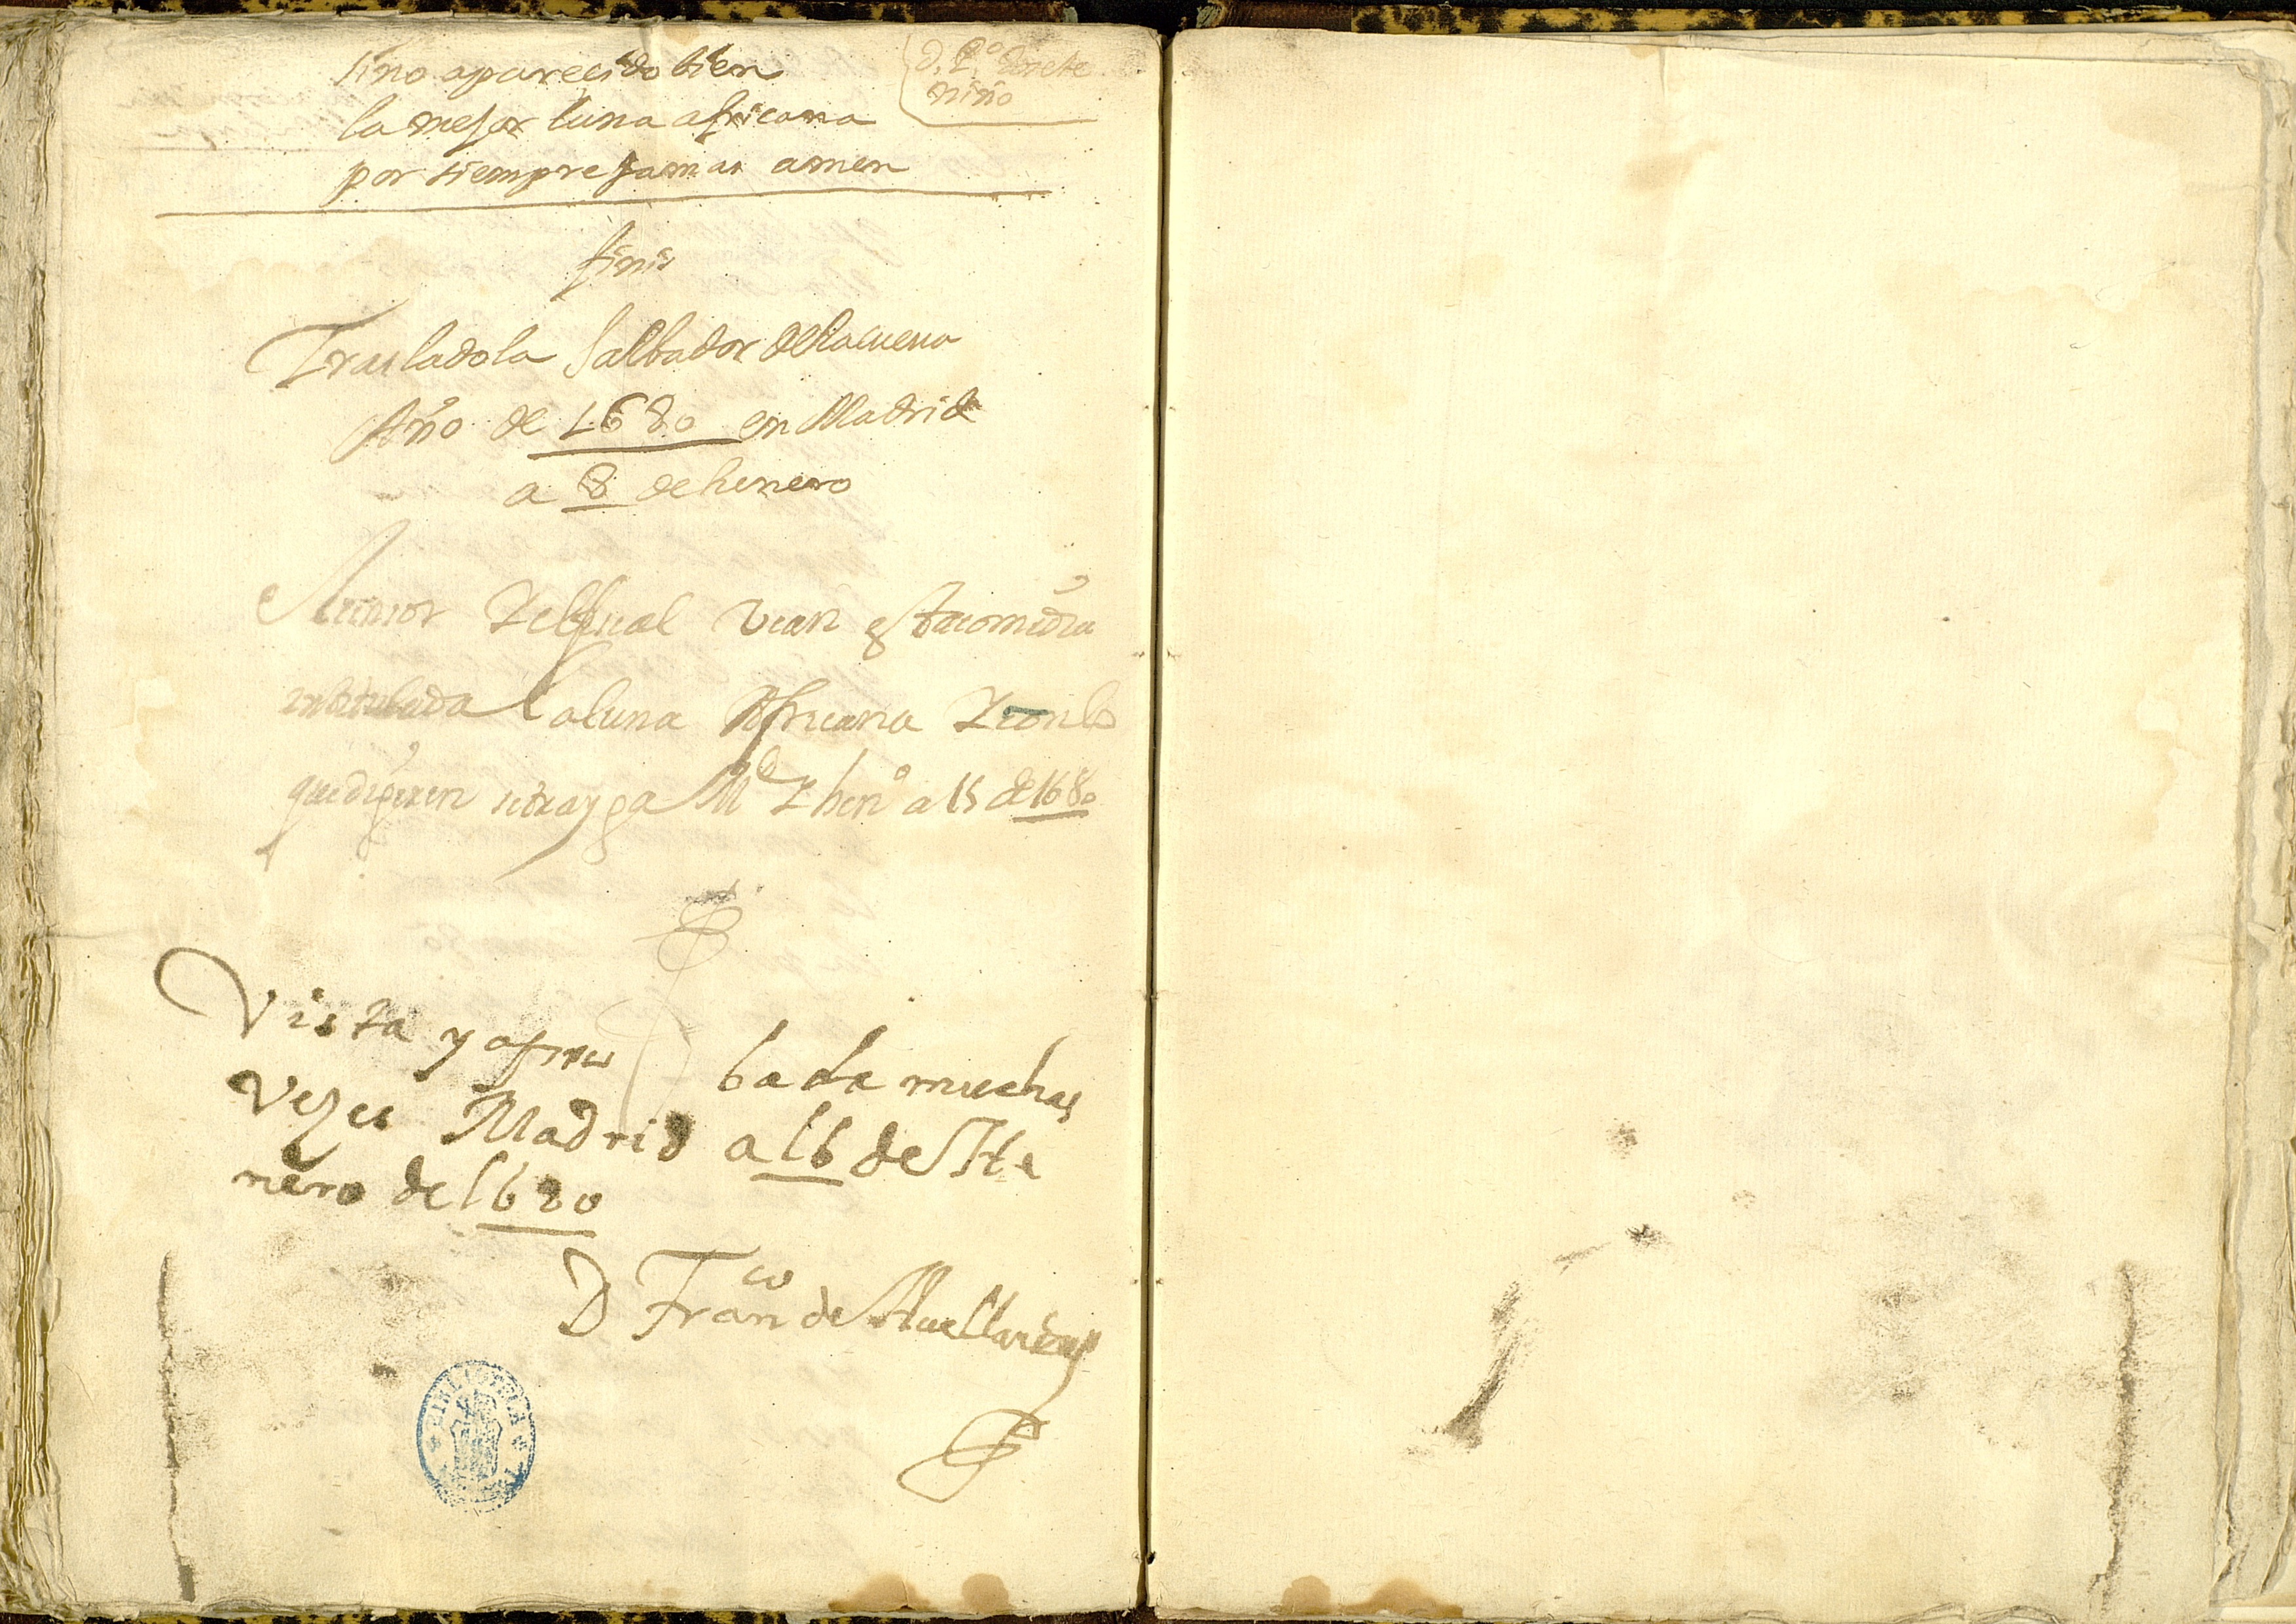 sino aparecido bien
la mejor luna africana
por siempre jamas amen
D. P.º Rosete
niño
finis
Trasladola Salbador de la cueva
Año de 1680 en Madrid
a 8 de henero
El çensor y el fiscal vean esta comedia
intitulada la luna Africana y con lo
que dijeren se trayga M.d y hen.º a 15 de 1680
Vista y aprobada muchas
vezes Madrid a 16 de He
nero de 1680
D Fran.co de Avellaneda
BIBLIOTECA